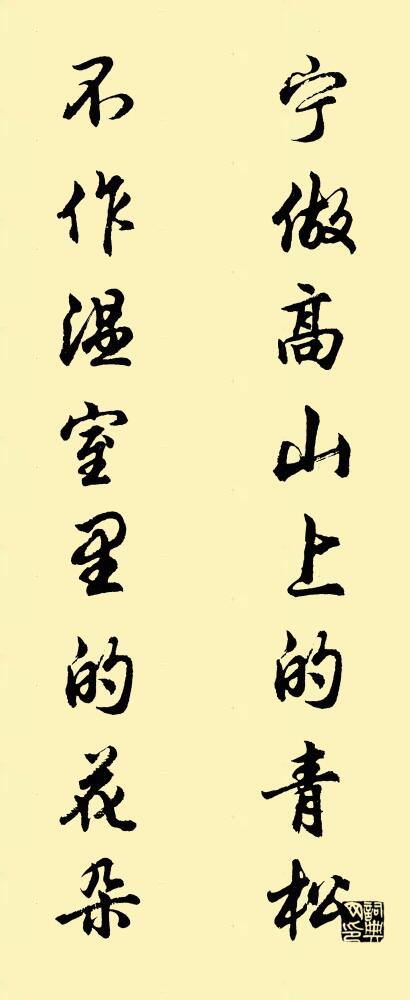 宁做高山上的青松
不作温室里的花朵